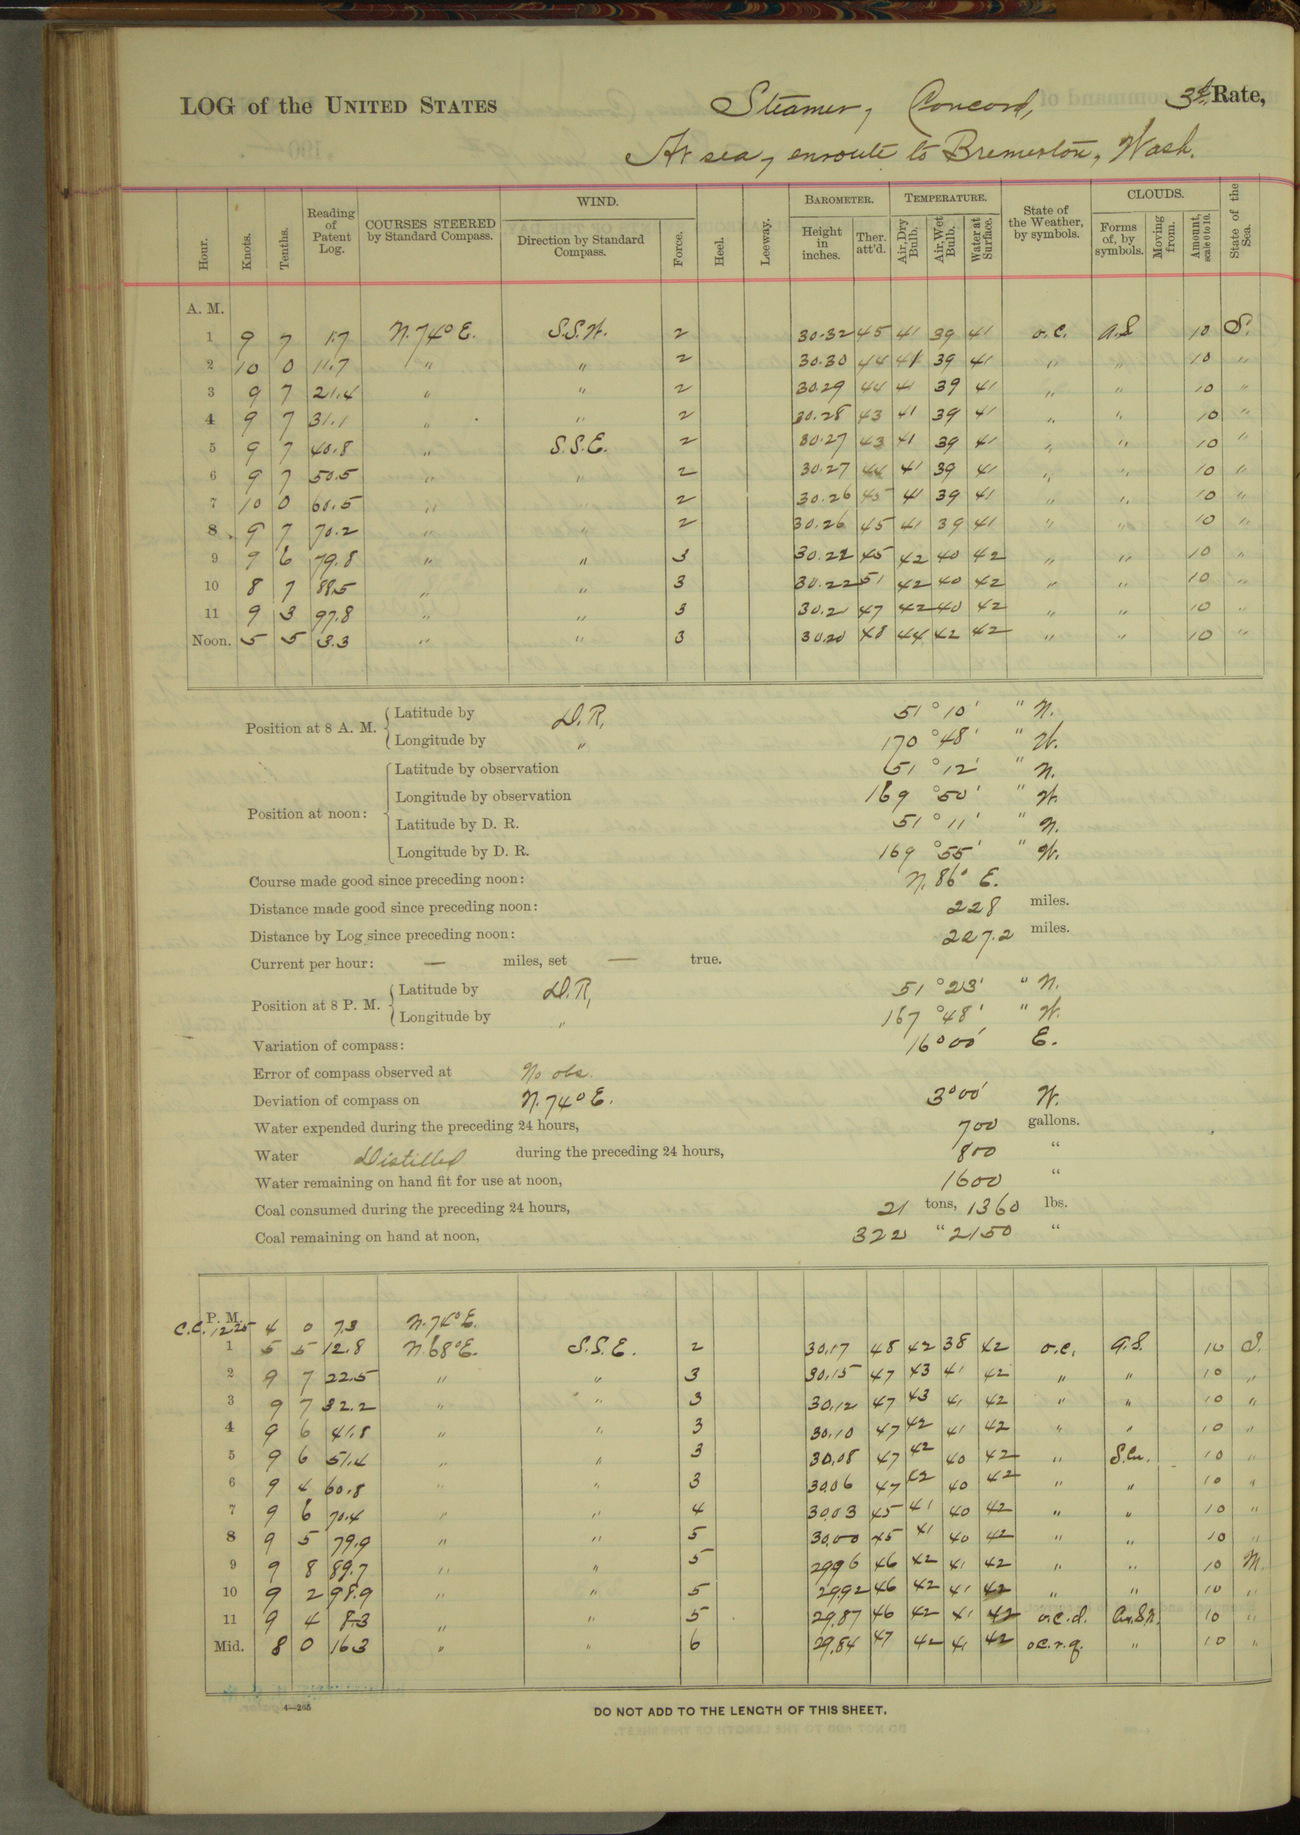 LOG of the UNITED STATES Steamer, Concord, 3d Rate,
At sea, enroute to Bremerton, Wash.
Hour. Knots. Tenths. Reading of Patent Log. COURSES STEERED by Standard Compass. WIND. Direction by Standard Compass. Force. Heel. Leeway. BAROMETER. Height in inches. Ther. att'd. TEMPERATURE. Air, Dry Bulb. Air, Wet Bulb. Water at Surface. State of the Weather, by symbols. CLOUDS. Forms of, by symbols. Moving from. Amount, scale 0 to 10. State of the Sea.
A. M.
1 9 7 1.7 N. 74° E. S.S.W. 2 30.32 45 41 39 41 o.c. a.S 10 S.
2 10 0 11.7 " " 2 30.30 44 41 39 41 " " 10 "
3 9 7 21.4 " " 2 30.29 44 41 39 41 " " 10 "
4 9 7 31.1 " " 2 30.28 43 41 39 41 " " 10 "
5 9 7 40.8 " S.S.E. 2 30.27 43 41 39 41 " " 10 "
6 9 7 50.5 " " 2 30.27 44 41 39 41 " " 10 "
7 10 0 60.5 " " 2 30.26 45 41 39 41 " " 10 "
8 9 7 70.2 " " 2 30.26 45 41 39 41 " " 10 "
9 9 6 79.8 " " 3 30.22 45 42 40 42 " " 10 "
10 8 7 88.5 " " 3 30.22 51 42 40 42 " " 10 "
11 9 3 97.8 " " 3 30.2 47 42 40 42 " " 10 "
Noon. 5 5 3.3 " " 3 30.20 48 44 42 42 " " 10 "
Position at 8 A. M. Latitude by D.R, 51° 10' " N.
Longitude by " 170° 48' " W.
Position at noon: Latitude by observation 51° 12' " N.
Longitude by observation 169° 50' " W.
Latitude by D. R. 51° 11' " N.
Longitude by D. R. 169° 55' " W.
Course made good since preceding noon: N. 86° E.
Distance made good since preceding noon: 228 miles.
Distance by Log since preceding noon: 227.2 miles.
Current per hour: — miles, set — true.
Position at 8 P. M. Latitude by D.R, 51° 23' " N.
Longitude by " 167° 48' " W.
Variation of compass: 16° 00' E.
Error of compass observed at No obs.
Deviation of compass on N. 74° E. 3° 00' W.
Water expended during the preceding 24 hours, 700 gallons.
Water Distilled during the preceding 24 hours, 800 "
Water remaining on hand fit for use at noon, 1600 "
Coal consumed during the preceding 24 hours, 21 tons, 1360 lbs.
Coal remaining on hand at noon, 322 " 2150 "
P. M.
C.C. 12.25 4 0 7.3 N. 74° E.
1 5 5 12.8 N. 68° E. S.S.E. 2 30.17 48 42 38 42 o.c. a.S. 10 S.
2 9 7 22.5 " " 3 30.15 47 43 41 42 " " 10 "
3 9 7 32.2 " " 3 30.12 47 43 41 42 " " 10 "
4 9 6 41.8 " " 3 30.10 47 42 41 42 " " 10 "
5 9 6 51.4 " " 3 30.08 47 42 40 42 " S.Cu. 10 "
6 9 4 60.8 " " 3 30.06 47 42 40 42 " " 10 "
7 9 6 70.4 " " 4 30.03 45 41 40 42 " " 10 "
8 9 5 79.9 " " 5 30.00 45 41 40 42 " " 10 "
9 9 8 89.7 " " 5 29.96 46 42 41 42 " " 10 M.
10 9 2 98.9 " " 5 29.92 46 42 41 42 " " 10 "
11 9 4 8.3 " " 5 29.87 46 42 41 42 o.c.d. 10 "
Mid. 8 0 16.3 " " 6 29.84 47 42 41 42 o.c.r.q. " 10 "
4—265
DO NOT ADD TO THE LENGTH OF THIS SHEET.